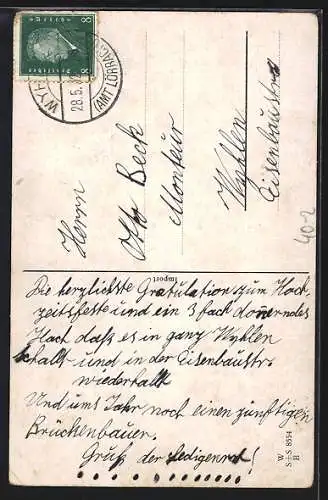 8 8
Deutsches Reich
WYH
(AMT LÖRRACH)
28.5.
Herrn
Otto Beck
Monteur
Wyhlen
Eisenbaustr.
40-2
Import
Die herzlichste Gratulation zum Hoch
zeitsfeste und ein 3 fach donerndes
Hoch daß es in ganz Wyhlen
schallt und in der Eisenbaustr.
wiederhallt
Und ums Jahr noch einen zünftigen
Brückenbauer.
Gruß der Ledigenrat!
W
S+S 8554
B